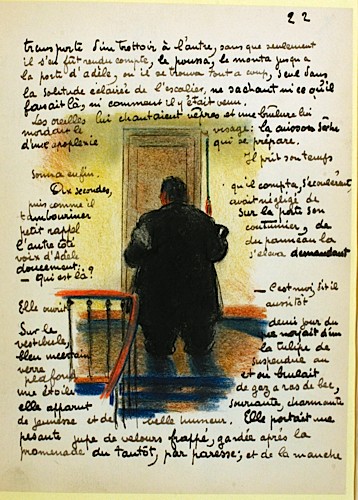 22
transporte d'un trottoir à l'autre, sans que seulement
il s'en fût rendu compte, le poussa, le monta jusqu'à
la porte d'Adèle, où il se trouva tout à coup, seul dans
la solitude éclairée de l'escalier, ne sachant ni ce qu'il
faisait là, ni comment il y était venu.
Les oreilles lui chantaient vêpres et une brûlure lui
mordait le visage: la
d'une apoplexie qui se prépare.
Il prit son temps
sonna enfin.
Dix secondes, qu'il compta, s'écoulèrent
puis comme il avait négligé de
tambouriner sur la porte son
petit rappel coutumier, de
l'autre côté du panneau la
voix d'Adèle s'éleva demandant
doucement:
— Qui est là?
— C'est moi, fit-il
aussitôt
Elle ouvrit
Sur le demi jour du
vestibule, que noyait d'un
bleu incertain la tulipe de
verre suspendue au
plafond et où brûlait
une étoile de gaz à ras de bec,
elle apparut souriante, charmante
de jeunesse et de belle humeur. Elle portait une
pesante jupe de velours frappé, gardée après la
promenade du tantôt, par paresse; et de la manche